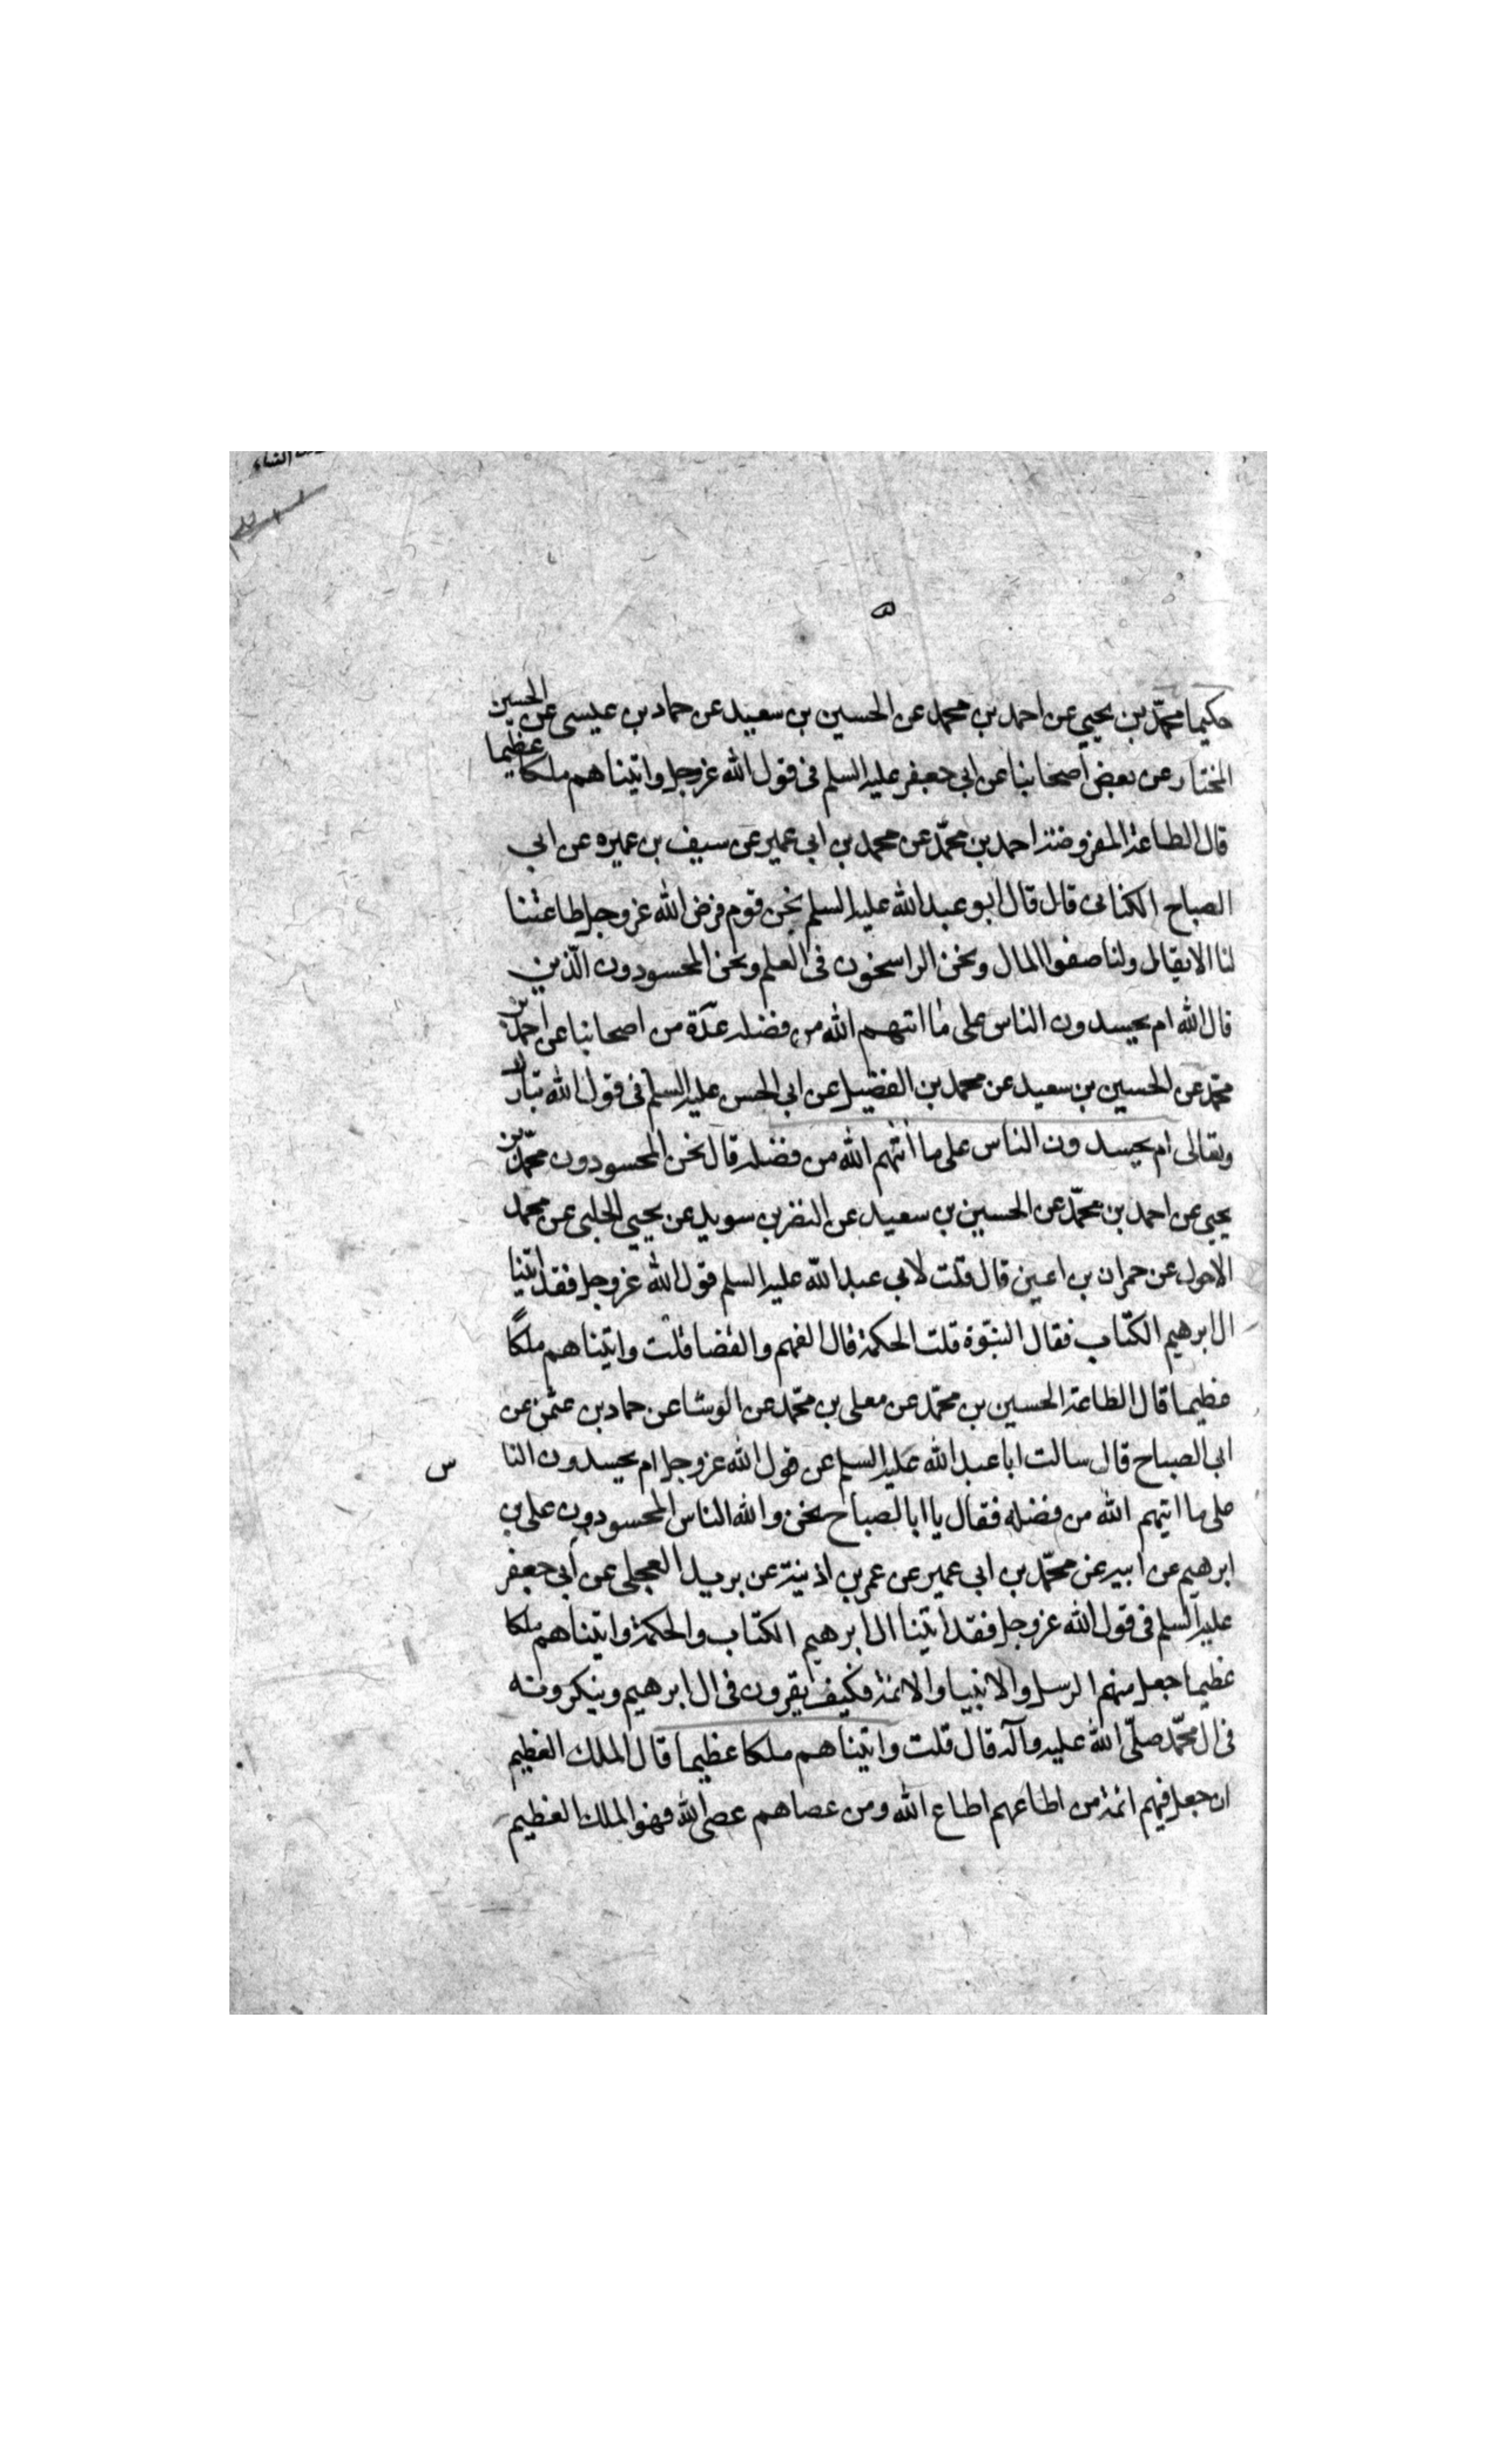 حكيما محمّد بن يحيى عن احمد بن محمد عن الحسين بن سعيد عن حماد بن عيسى عن الحسين
المختار عن بعض اصحابنا عن ابي جعفر عليه السلم في قول الله عزوجل واتيناهم ملكا عظيما
قال الطاعة المفروضة احمد بن محمّد عن محمد بن ابي عمير عن سيف بن عميره عن ابي
الصباح الكناني قال قال ابو عبد الله عليه السلم نحن قوم فرض الله عزوجل طاعتنا
لنا الانفال ولنا صفوا المال ونحن الراسخون في العلم ونحن المحسودون الّذين
قال الله ام يحسدون الناس على ما اتيهم الله من فضله عدّة من اصحابنا عن احمد بن
محمّد عن الحسين بن سعيد عن محمد بن الفضيل عن ابي الحسن عليه السلم في قول الله تبارك
وتعالى ام يحسدون الناس على ما اتيهم الله من فضله قال نحن المحسودون محمّد بن
يحيى عن احمد بن محمّد عن الحسين بن سعيد عن النضر بن سويد عن يحيى الحلبي عن محمد
الاحول عن حمران بن اعين قال قلت لابي عبد الله عليه السلم قول الله عزوجل فقد اتينا
ال ابرهيم الكتاب فقال النبّوة قلت الحكمة قال الفهم والقضا قلت واتيناهم ملكًا
عظيما قال الطاعة الحسين بن محمّد عن معلى بن محمّد عن الوشا عن حماد بن عثمن عن
ابي الصباح قال سالت ابا عبد الله عليه السلم عن قول الله عزوجل ام يحسدون النا س
على ما اتيهم الله من فضله فقال يا ابا الصباح نحن والله الناس المحسودون علي بن
ابرهيم عن ابيه عن محمّد بن ابي عمير عن عمر بن اذينة عن بريد العجلي عن ابي جعفر
عليه السلم في قول الله عزوجل فقد اتينا ال ابرهيم الكتاب والحكمة واتيناهم ملكا
عظيما جعل منهم الرسل والانبيا والائمة فكيف يقرون في ال ابرهيم وينكرونه
في ال محمّد صلّى الله عليه وآله قال قلت واتيناهم ملكا عظيما قال الملك العظيم
ان جعل فيهم ائمة من اطاعهم اطاع الله ومن عصاهم عصى الله فهو الملك العظيم